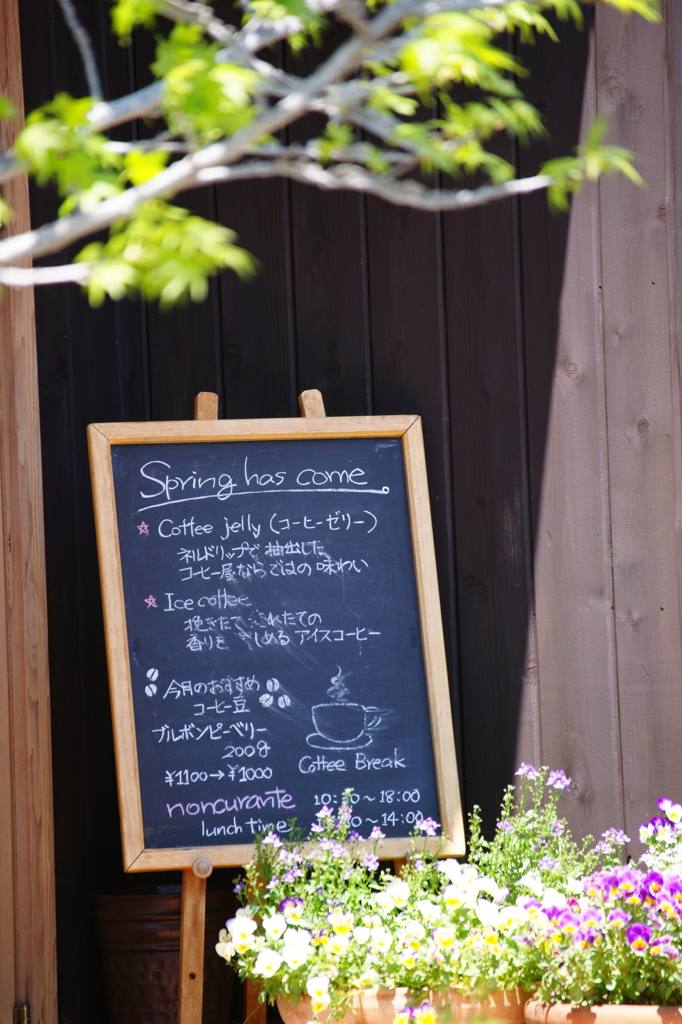 Spring has come
Coffee jelly (コーヒーゼリー)
ネルドリップで抽出した
コーヒー屋ならではの味わい
Ice coffee
挽きたて れたての
香りを しめる アイスコーヒー
今月のおすすめ
コーヒー豆
ブルボンピーベリー
200g
¥1100→¥1000
Coffee Break
noncurante 10: 0~18:00
lunch time 0~14:00